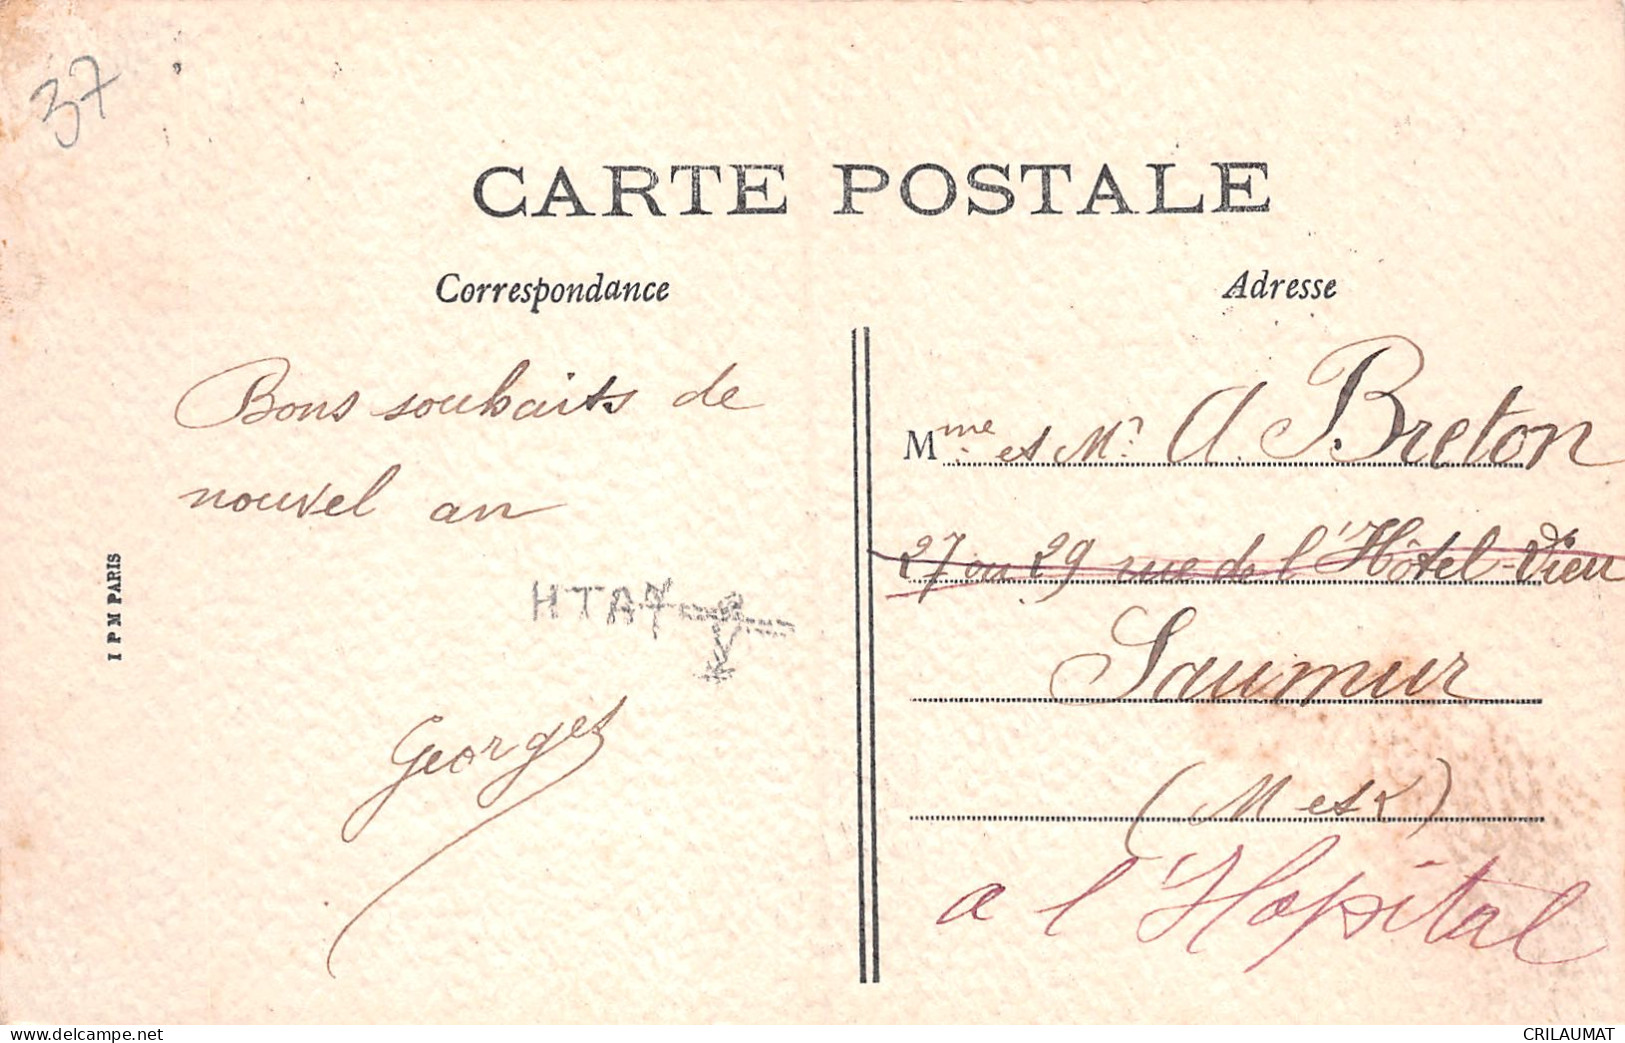 37
CARTE POSTALE
Correspondance
Adresse
Bons souhaits de
nouvel an
HTA7
Georges
I P M PARIS
Mme et Mr A. Breton
27 ou 29 rue de l'Hôtel-Dieu
Saumur
(M et L)
a l'Hopital
www.delcampe.net
CRILAUMAT